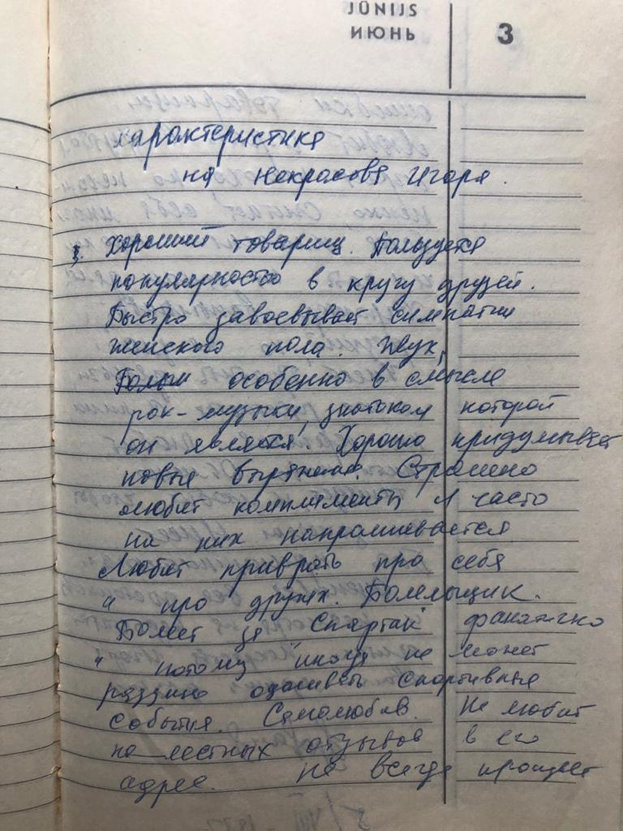 JŪNIJS
ИЮНЬ
3
Характеристика
на Некрасова Игоря.
Хороший товарищ. Пользуется
популярностью в кругу друзей.
Быстро завоевывает симпатии
женского пола. Жук,
особенно в смысле
рок-музыки, знатоком которой
он является. Хорошо придумывает
новые выражения. Страшно
любит комплименты и часто
на них напрашивается
Любит приврать про себя
и про других. Болельщик.
Болеет за "Спартак" фанатично
и потому иногда не может
разумно оценивать спортивные
события. Самолюбив. Не любит
не лестных отзывов в его
адрес. Не всегда прощает